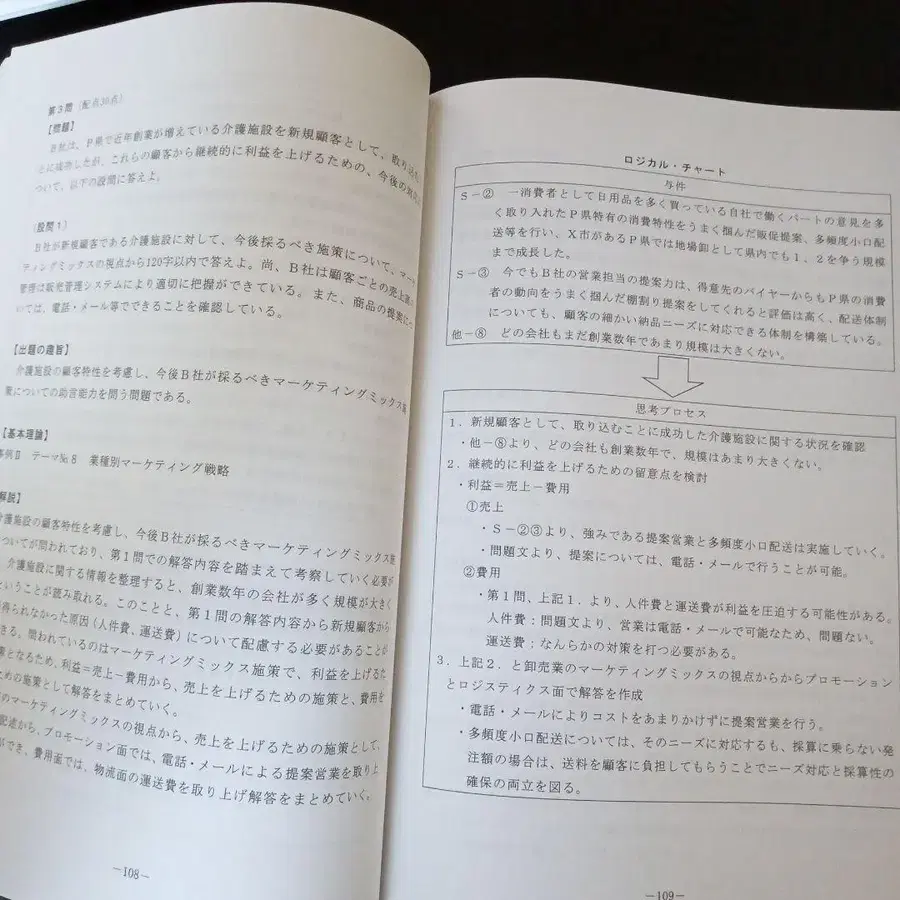 第3問（配点30点）
【問題】
B社は、P県で近年創業が増えている介護施設を新規顧客として、取り込む
とに成功したが、これらの顧客から継続的に利益を上げるための、今後の対応に
ついて、以下の設問に答えよ。
（設問1）
B社が新規顧客である介護施設に対して、今後採るべき施策について、マーケ
ティングミックスの視点から120字以内で答えよ。尚、B社は顧客ごとの売上
管理は販売管理システムにより適切に把握ができている。また、商品の提案につ
いては、電話・メール等でできることを確認している。
【出題の趣旨】
介護施設の顧客特性を考慮し、今後B社が採るべきマーケティングミックス施
策についての助言能力を問う問題である。
【基本理論】
事例Ⅱ テーマ№8 業種別マーケティング戦略
解説】
介護施設の顧客特性を考慮し、今後B社が採るべきマーケティングミックス施
ついてが問われており、第1問での解答内容を踏まえて考察していく必要が
介護施設に関する情報を整理すると、創業数年の会社が多く規模が大きく
ということが読み取れる。このことと、第1問の解答内容から新規顧客から
得られなかった原因（人件費、運送費）について配慮する必要があることが
きる。問われているのはマーケティングミックス施策で、利益を上げるた
策となるため、利益＝売上－費用から、売上を上げるための施策と、費用を
ための施策として解答をまとめていく。
のマーケティングミックスの視点から、売上を上げるための施策として、
配送から、プロモーション面では、電話・メールによる提案営業を取り上
ができ、費用面では、物流面の運送費を取り上げ解答をまとめていく。
―108―
ロジカル・チャート
与件
S－② 一消費者として日用品を多く買っている自社で働くパートの意見を多
く取り入れたP県特有の消費特性をうまく掴んだ販促提案、多頻度小口配
送等を行い、X市があるP県では地場卸として県内でも1、2を争う規模
まで成長した。
S－③ 今でもB社の営業担当の提案力は、得意先のバイヤーからもP県の消費
者の動向をうまく掴んだ棚割り提案をしてくれると評価は高く、配送体制
についても、顧客の細かい納品ニーズに対応できる体制を構築している。
他－⑧ どの会社もまだ創業数年であまり規模は大きくない。
思考プロセス
1．新規顧客として、取り込むことに成功した介護施設に関する状況を確認
・他－⑧より、どの会社も創業数年で、規模はあまり大きくない。
2．継続的に利益を上げるための留意点を検討
・利益＝売上－費用
①売上
・S－②③より、強みである提案営業と多頻度小口配送は実施していく。
・問題文より、提案については、電話・メールで行うことが可能。
②費用
・第1問、上記1．より、人件費と運送費が利益を圧迫する可能性がある。
人件費：問題文より、営業は電話・メールで可能なため、問題ない。
運送費：なんらかの対策を打つ必要がある。
3．上記2．と卸売業のマーケティングミックスの視点からからプロモーション
とロジスティクス面で解答を作成
・電話・メールによりコストをあまりかけずに提案営業を行う。
・多頻度小口配送については、そのニーズに対応するも、採算に乗らない発
注額の場合は、送料を顧客に負担してもらうことでニーズ対応と採算性の
確保の両立を図る。
―109―